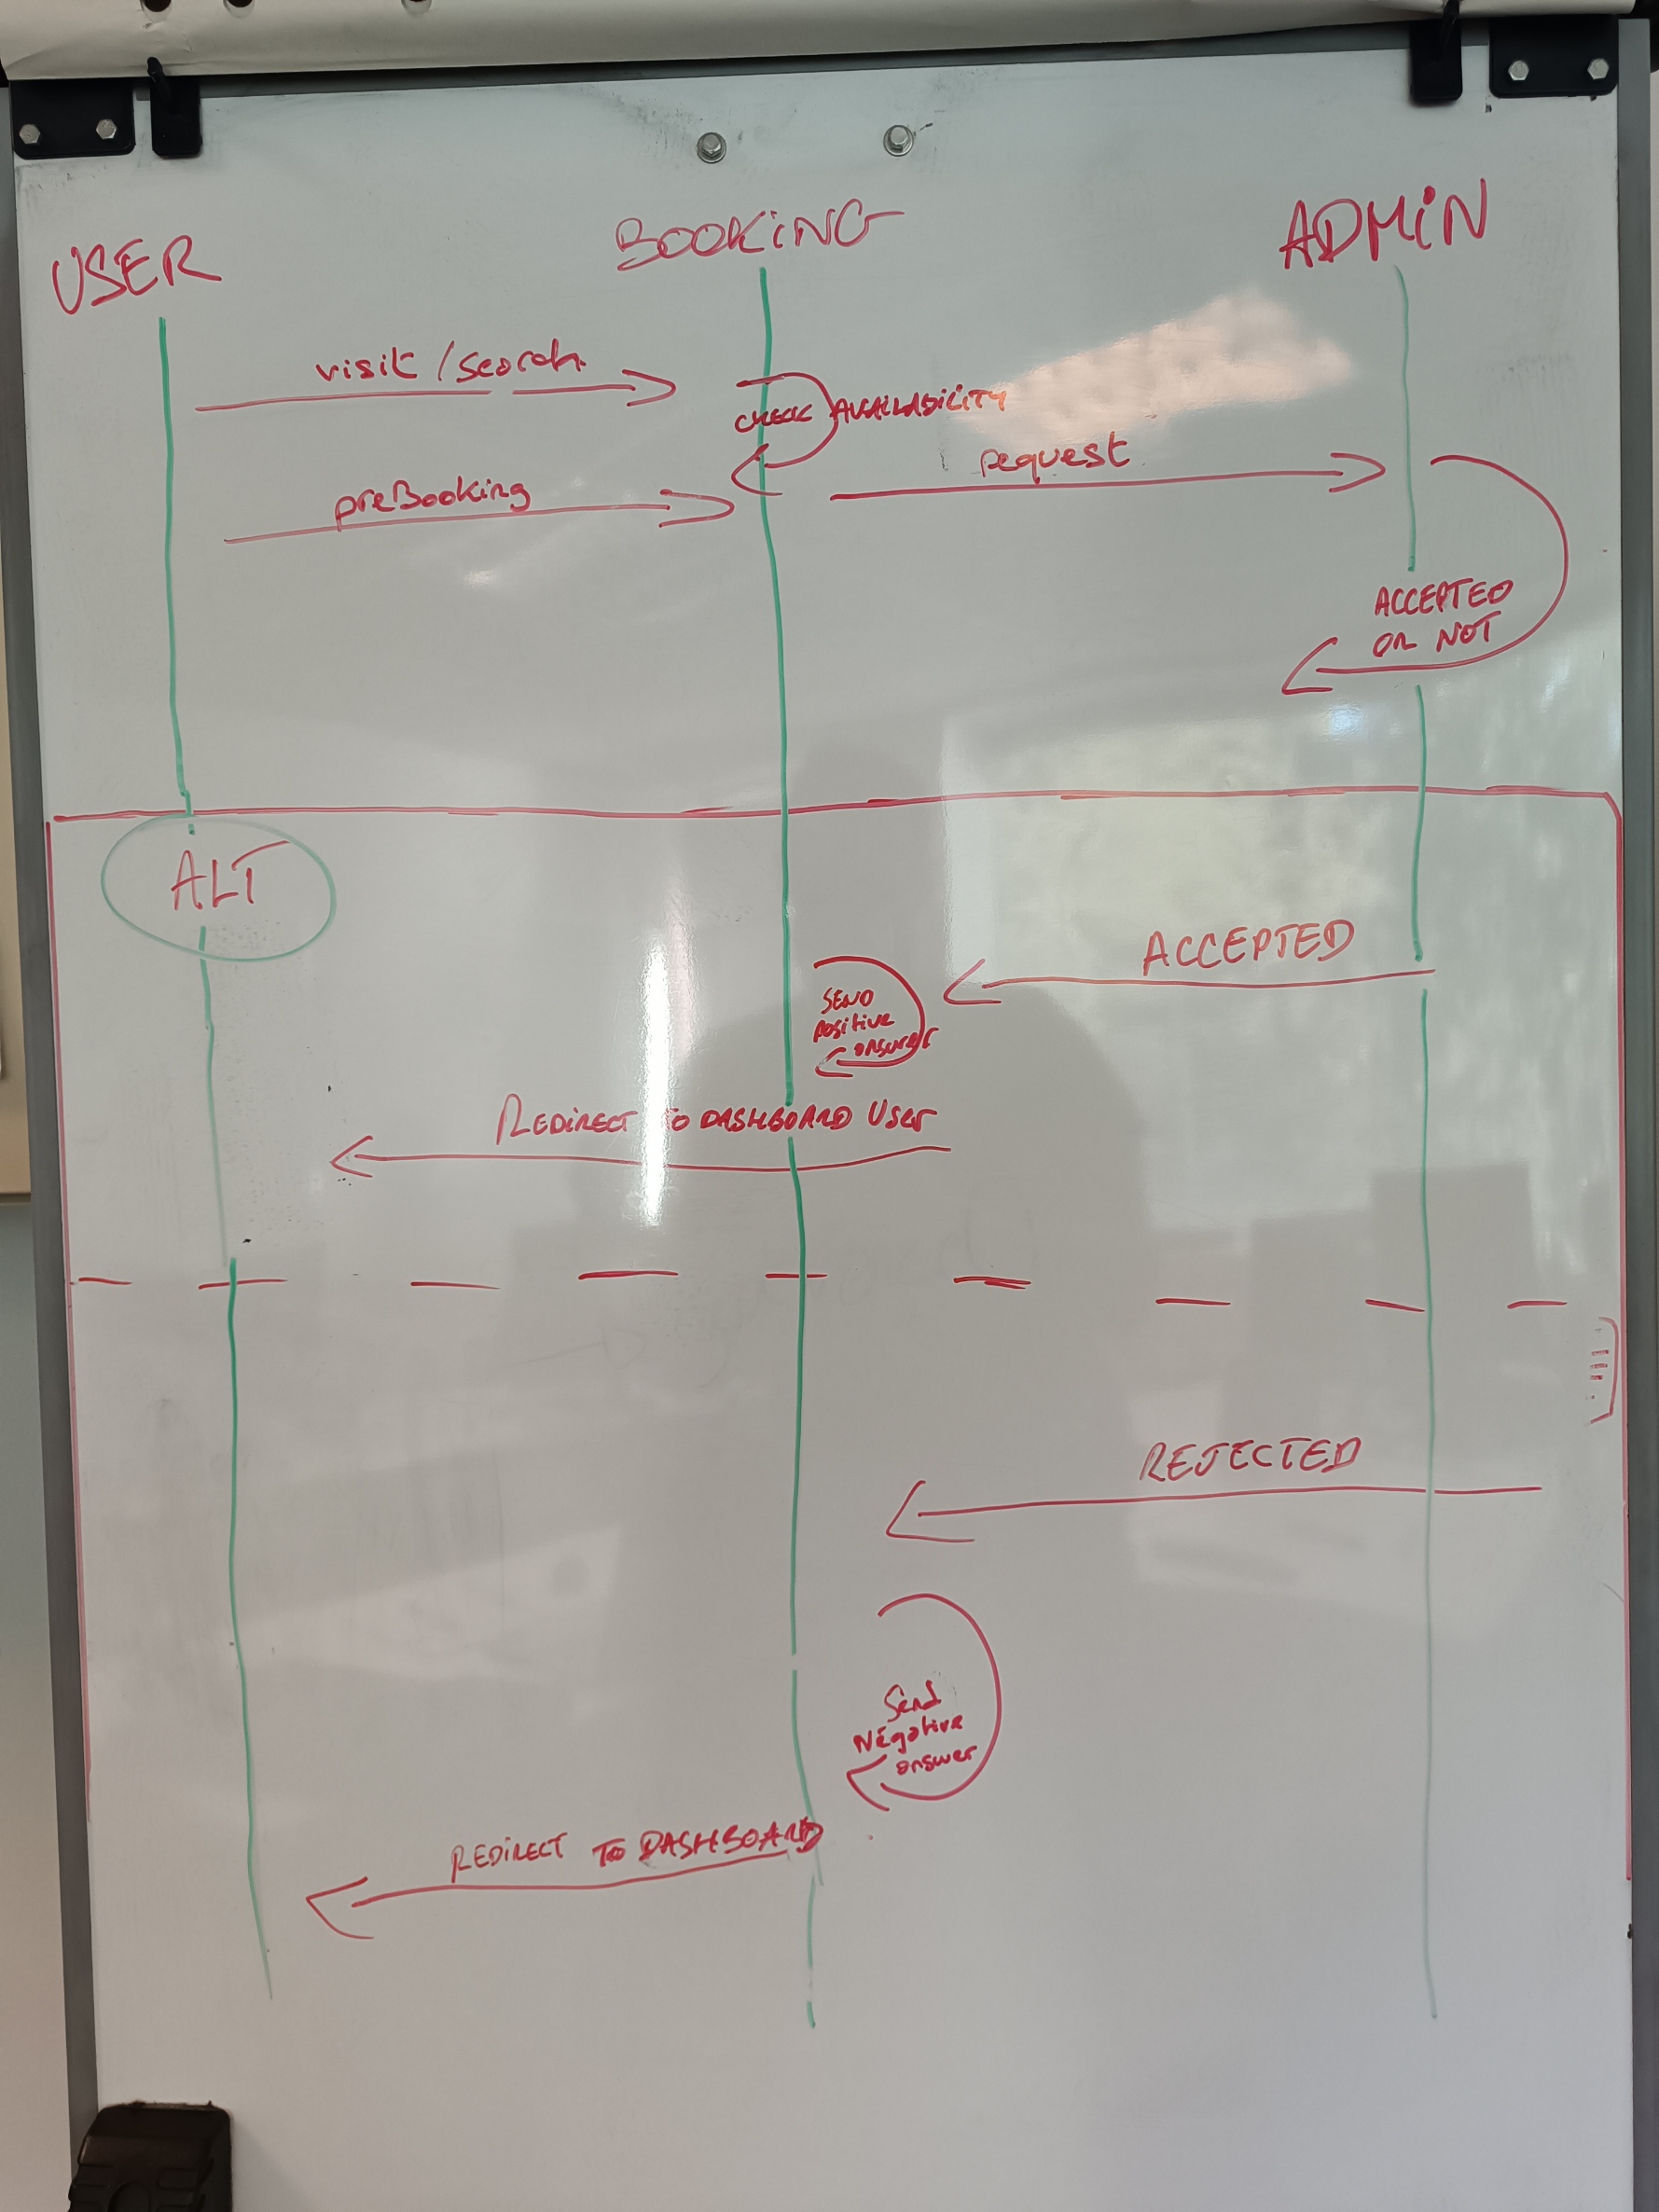 USER
BOOKiNG
ADMiN
visit / search
CHECK AVAiLABiLiTY
request
preBooking
ACCEPTED
OR NOT
ALT
ACCEPTED
SEND
positive
answer
REDiRECT TO DASHBOARD User
REJECTED
Send
Négative
answer
REDiRECT TO DASHBOARD